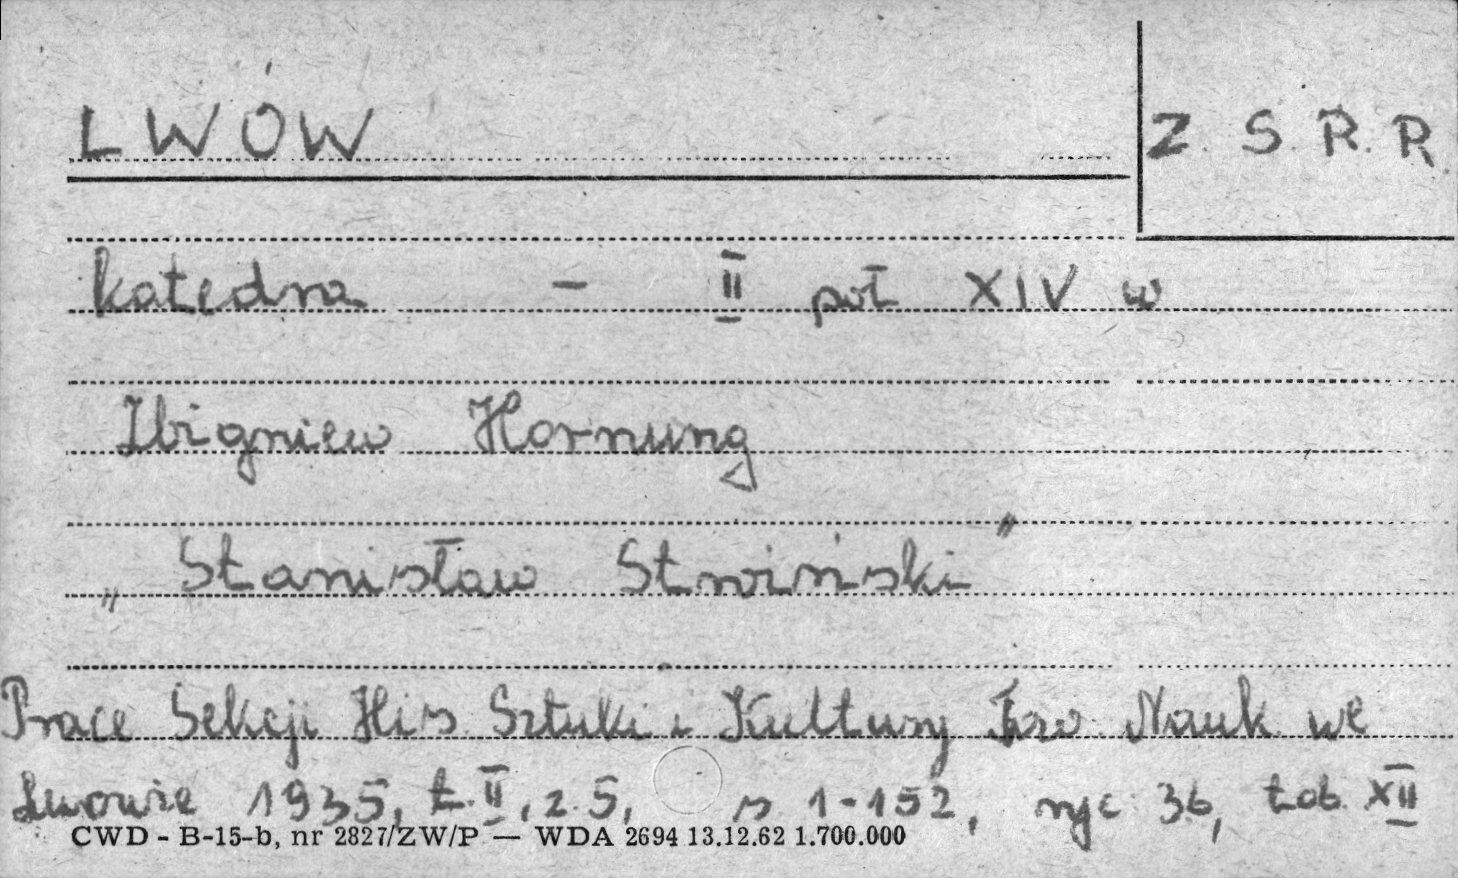 LWÓW
Z. S. R. R.
katedra - II poł XIV w
Zbigniew Hornung
„Stanisław Stroiński"
Prace Sekcji His Sztuki i Kultury Tow Nauk we
Lwowie 1935, t. II, z. 5, s 1-152, ryc 36, tab. XII
CWD - B-15-b, nr 2827/ZW/P — WDA 2694 13.12.62 1.700.000